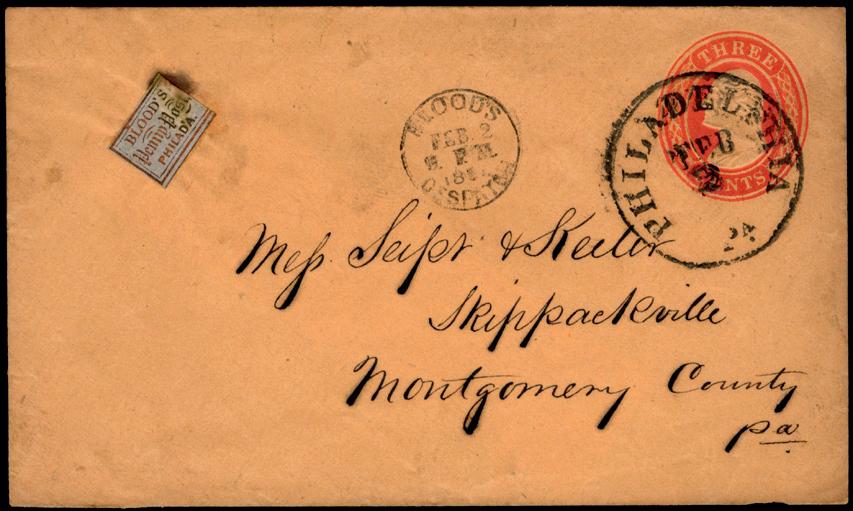 BLOOD'S
Penny Post
PHILAD'A.
BLOOD'S
FEB 2
DESPATCH
THREE
CENTS
PHILADELPHIA
FEB
2
PA
Mess. Seipt & Keeler
Skippackville
Montgomery County
Pa